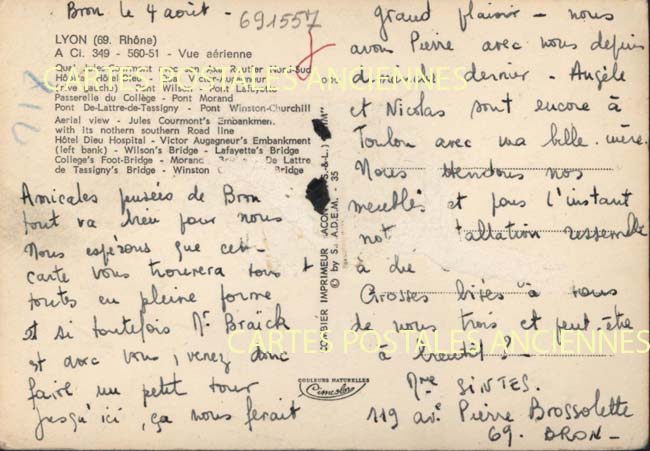 Bron le 4 août -
691557
LYON (69. Rhône)
A Ci. 349 - 560-51 - Vue aérienne
Quai Jules-Courmont avec son Axe Routier Nord-Sud
Hôpital Hôtel-Dieu - Quai Victor-Augagneur
(rive gauche) Pont Wilson - Pont Lafayette
Passerelle du Collège - Pont Morand
Pont De-Lattre-de-Tassigny - Pont Winston-Churchill
Aerial view - Jules Courmont's Embankment
with its nothern southern Road line
Hôtel Dieu Hospital - Victor Augagneur's Embankment
(left bank) - Wilson's Bridge - Lafayette's Bridge
College's Foot-Bridge - Morand Bridge - De Lattre
de Tassigny's Bridge - Winston Bridge
Amicales pensées de Bron
tout va bien pour nous
Nous espérons que cette
carte vous trouvera tous +
toutes en pleine forme
et si toutefois Mr Braïck
est avec vous, venez donc
faire un petit tour
jusqu'ici, ça nous ferait
COMBIER IMPRIMEUR MACON (S.-&-L.) "CIM"
© by S. A.D.E.M. - 35
COULEURS NATURELLES
Cimcolor
grand plaisir - nous
avons Pierre avec nous depuis
dernier - Angèle
et Nicolas sont encore à
Toulon avec ma belle-mère.
Nous attendons nos
meubles et pour l'instant
ressemble
à
Grosses bises à vous
de nous trois et peut-être
à bientôt ?-
Mme SINTES.
119 av. Pierre Brossolette
69. BRON -
CARTES POSTALES ANCIENNES
CARTES POSTALES ANCIENNES